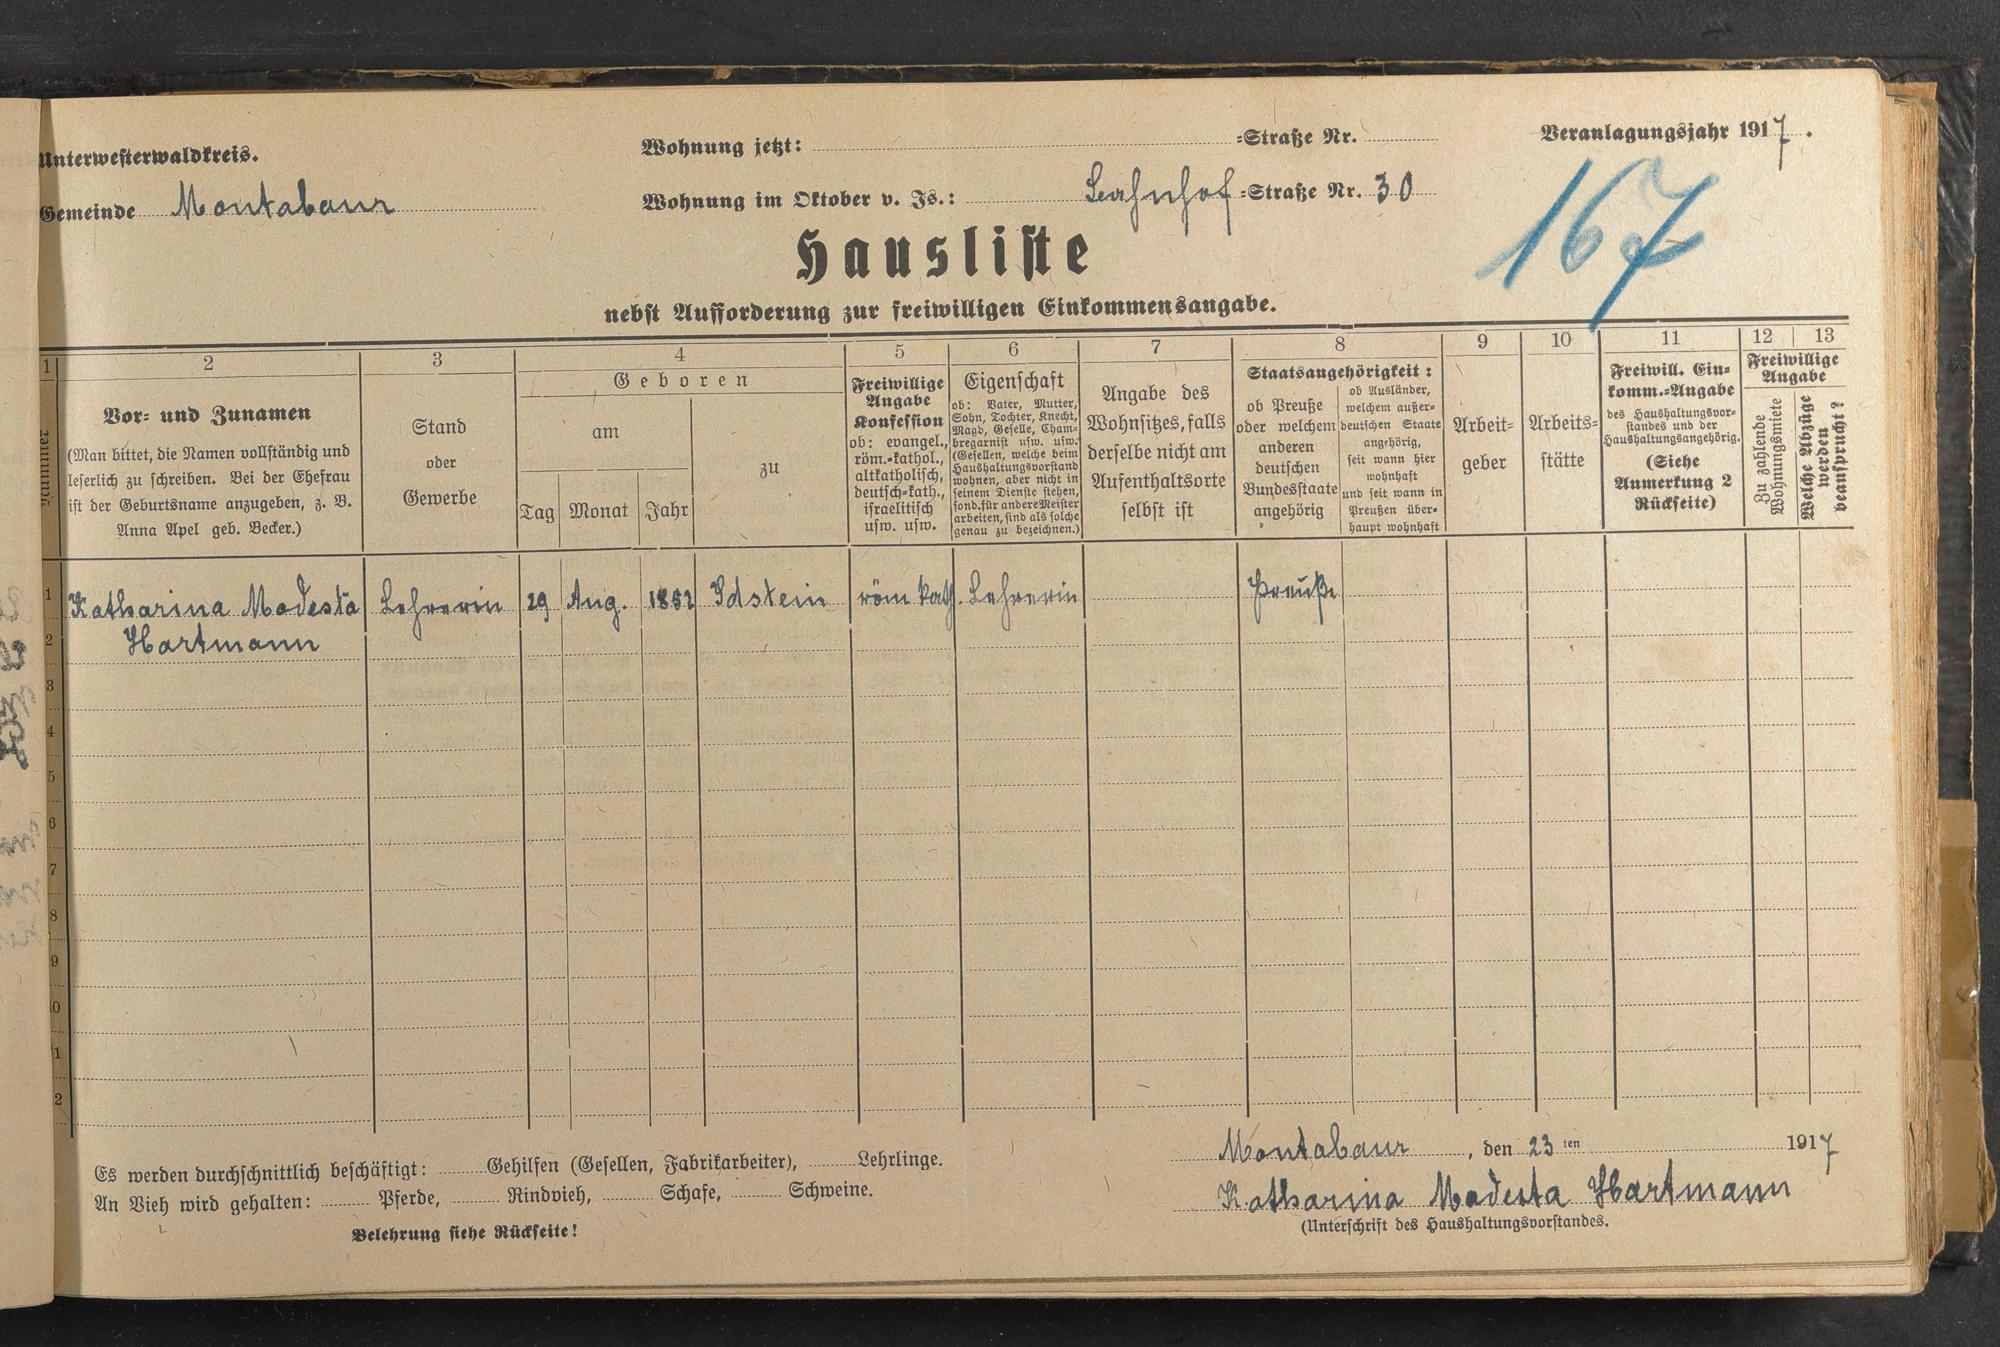 Unterwesterwaldkreis.
Gemeinde Montabaur
Wohnung jetzt: -Straße Nr.
Wohnung im Oktober v. Js.: Bahnhof -Straße Nr. 30
Veranlagungsjahr 1917.
167
Hausliste
nebst Aufforderung zur freiwilligen Einkommensangabe.
1 2 3 4 5 6 7 8 9 10 11 12 13
Nummer
Vor- und Zunamen
(Man bittet, die Namen vollständig und
leserlich zu schreiben. Bei der Ehefrau
ist der Geburtsname anzugeben, z. B.
Anna Apel geb. Becker.)
Stand
oder
Gewerbe
Geboren
am
Tag Monat Jahr
zu
Freiwillige
Angabe
Konfession
ob: evangel.,
röm.-kathol.,
altkatholisch,
deutsch-kath.,
israelitisch
usw. usw.
Eigenschaft
ob: Vater, Mutter,
Sohn, Tochter, Knecht,
Magd, Geselle, Cham-
bregarnist usw. usw.
(Gesellen, welche beim
Haushaltungsvorstand
wohnen, aber nicht in
seinem Dienste stehen,
sond. für andere Meister
arbeiten, sind als solche
genau zu bezeichnen.)
Angabe des
Wohnsitzes, falls
derselbe nicht am
Aufenthaltsorte
selbst ist
Staatsangehörigkeit:
ob Preuße
oder welchem
anderen
deutschen
Bundesstaate
angehörig
ob Ausländer,
welchem außer-
deutschen Staate
angehörig,
seit wann hier
wohnhaft
und seit wann in
Preußen über-
haupt wohnhaft
Arbeit-
geber
Arbeits-
stätte
Freiwill. Ein-
komm.-Angabe
des Haushaltungsvor-
standes und der
Haushaltungsangehörig.
(Siehe
Anmerkung 2
Rückseite)
Freiwillige
Angabe
Zu zahlende
Wohnungsmiete
Welche Abzüge
werden
beansprucht?
1 Katharina Modesta Lehrerin 29 Aug. 1852 Idstein röm kath. Lehrerin Preuße
2 Hartmann
3
4
5
6
7
8
9
10
11
12
Es werden durchschnittlich beschäftigt: Gehilfen (Gesellen, Fabrikarbeiter), Lehrlinge.
An Vieh wird gehalten: Pferde, Rindvieh, Schafe, Schweine.
Belehrung siehe Rückseite!
Montabaur, den 23ten 1917
Katharina Modesta Hartmann
(Unterschrift des Haushaltungsvorstandes.